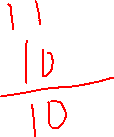 11
10
10